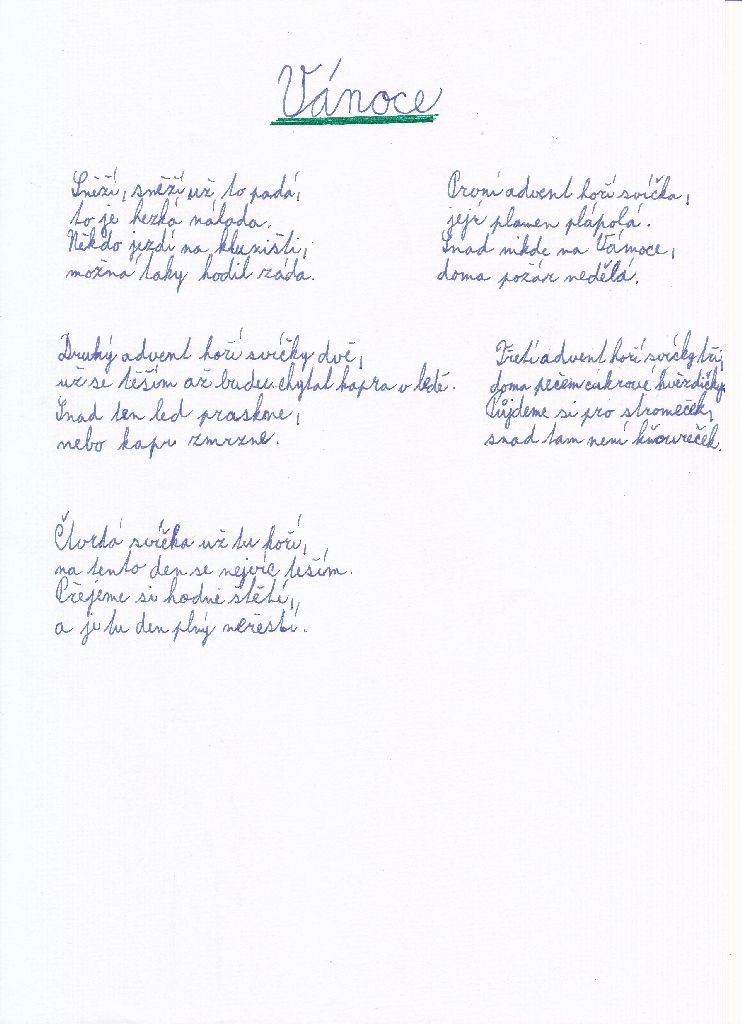 Vánoce
Sněží, sněží už to padá,
to je hezká nálada.
Někdo jezdí na kluzišti,
možná taky hodil záda.
První advent hoří svíčka,
její plamen plápolá.
Snad nikde na Vánoce,
doma požár nedělá.
Druhý advent hoří svíčky dvě,
už se těším až budu chytat kapra v ledě.
Snad ten led praskne,
nebo kapr zmrzne.
Třetí advent hoří svíčky tři,
doma pečem cukrové hvězdičky.
Půjdeme si pro stromeček,
snad tam není kňoureček.
Čtvrtá svíčka už tu hoří,
na tento den se nejvíc těším.
Přejeme si hodně štětí,
a je tu den plný neřestí.